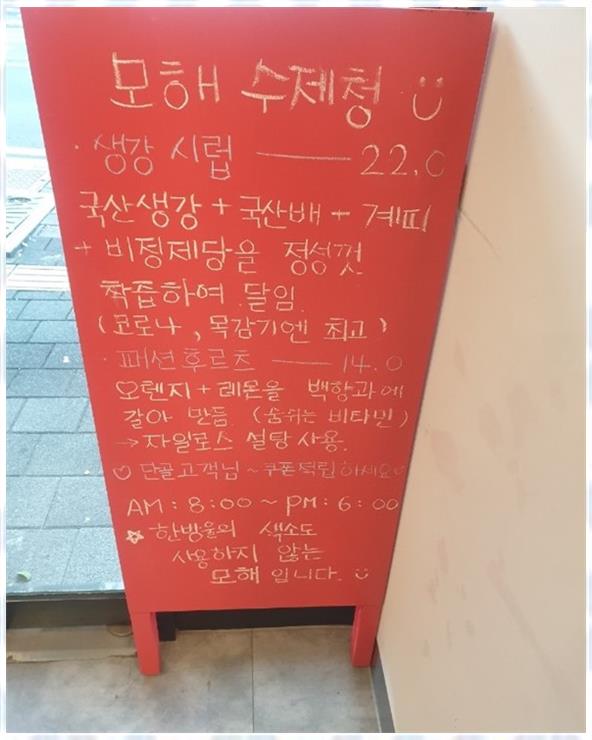 모해 수제청
· 생강 시럽 —— 22.0
국산생강 + 국산배 + 계피
+ 비정제당을 정성껏
착즙하여 달임.
(코로나, 목감기엔 최고)
· 패션후르츠 —— 14.0
오렌지 + 레몬을 백향과에
갈아 만듬 (숨쉬는 비타민)
→ 자일로스 설탕 사용.
♡ 단골고객님~ 쿠폰적립하세요♡
AM : 8:00 ~ PM : 6:00
☆ 한방울의 색소도
사용하지 않는
모해 입니다.